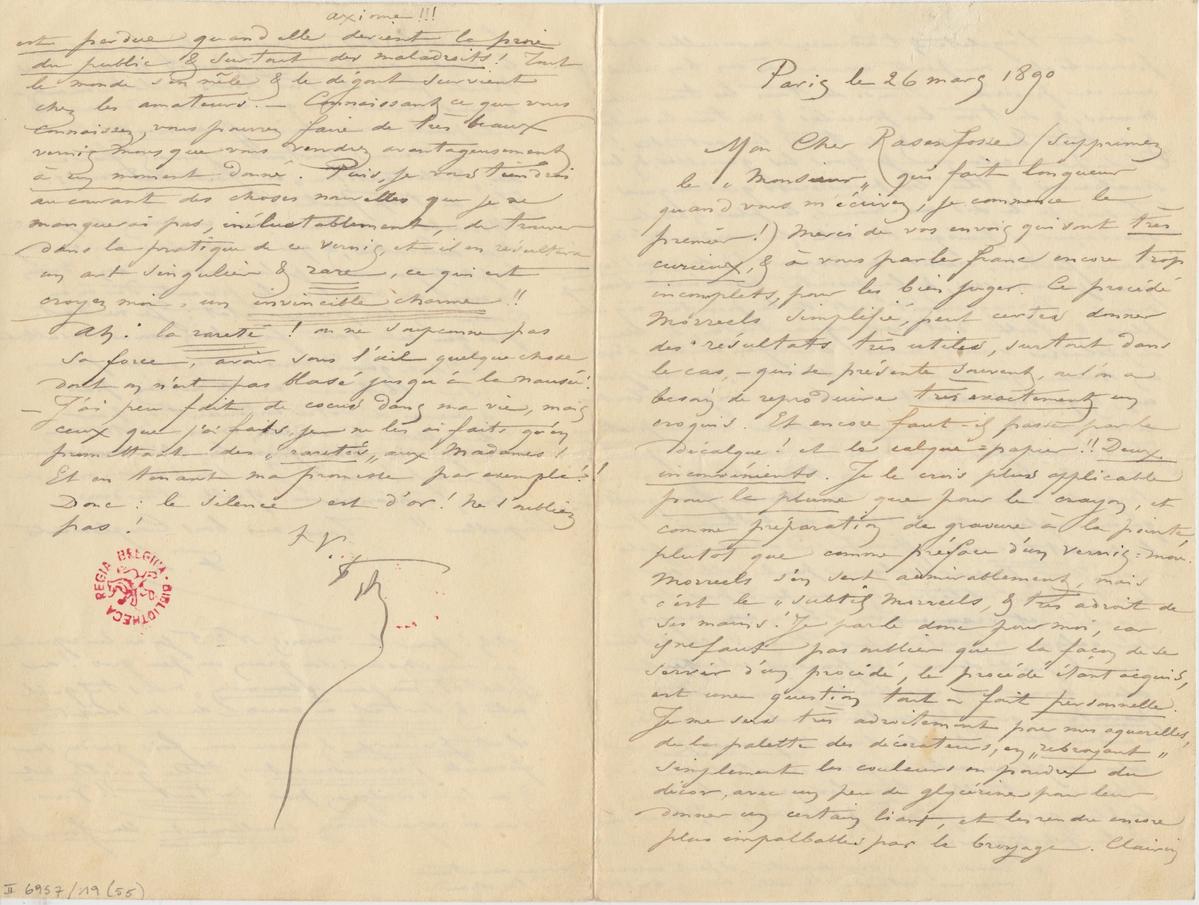 Paris le 26 mars 1890
Mon Cher Rassenfosse (supprimez
le „Monsieur„ qui fait longueur
quand vous m'écrivez, je commence le
premier!) Merci de vos envois qui sont très
curieux, & à vous parler franc encore trop
incomplets, pour les bien juger. Ce procédé
Morreels simplifié, peut certes donner
des résultats très utiles, surtout dans
le cas, – qui se présente souvent, où l'on a
besoin de reproduire très exactement un
croquis. Et encore faut-il passer par le
décalque! et le calque=papier!! Deux
inconvénients. Je le crois plus applicable
pour la plume que pour le crayon, et
comme préparation de gravure à la pointe
plutot que comme préface d'un vernis-mou.
Morreels s'en sert admirablement, mais
c'est le „subtil Morreels„ & très adroit de
ses mains! Je parle donc pour moi, car
il ne faut pas oublier que la façon de se
servir d'un procédé, le procédé étant acquis,
est une question tout à fait personnelle.
Je me sers très adroitement pour mes aquarelles,
de la palette des décorateurs, en „rebroyant„
simplement les couleurs en poudre du
décor, avec un peu de glycérine pour leur
donner un certain liant, et les rendre encore
plus impalpables par le broyage. Clairin
axiome!!!
est perdue quand elle devient la proie
du public & surtout des maladroits! Tout
le monde s'en mêle & le dégout survient
chez les amateurs. – Connaissant ce que vous
connaissez, vous pouvez faire de très beaux
vernis mous que vous vendrez avantageusement
à un moment donné. Puis, je vous tiendrai
au courant des choses nouvelles que je ne
manquerai pas, inéluctablement, de trouver
dans la pratique de ce vernis, et il en résultera
un art singulier & rare, ce qui est
croyez moi, un invincible charme!!
Ah! la rareté! on ne soupçonne pas
sa force, avoir sous l'œil quelque chose
dont on n'est pas blasé jusqu'à la nausée!
– J'ai peu fait de cocus dans ma vie, mais
ceux que j'ai faits, je ne les ai faits qu'en
promettant des „raretés„ aux Madames!
Et en tenant ma promesse par exemple!!
Donc: le silence est d'or! Ne l'oubliez
pas!
REGIA BELGICA · BIBLIOTHECA
II 6957/19 (55)